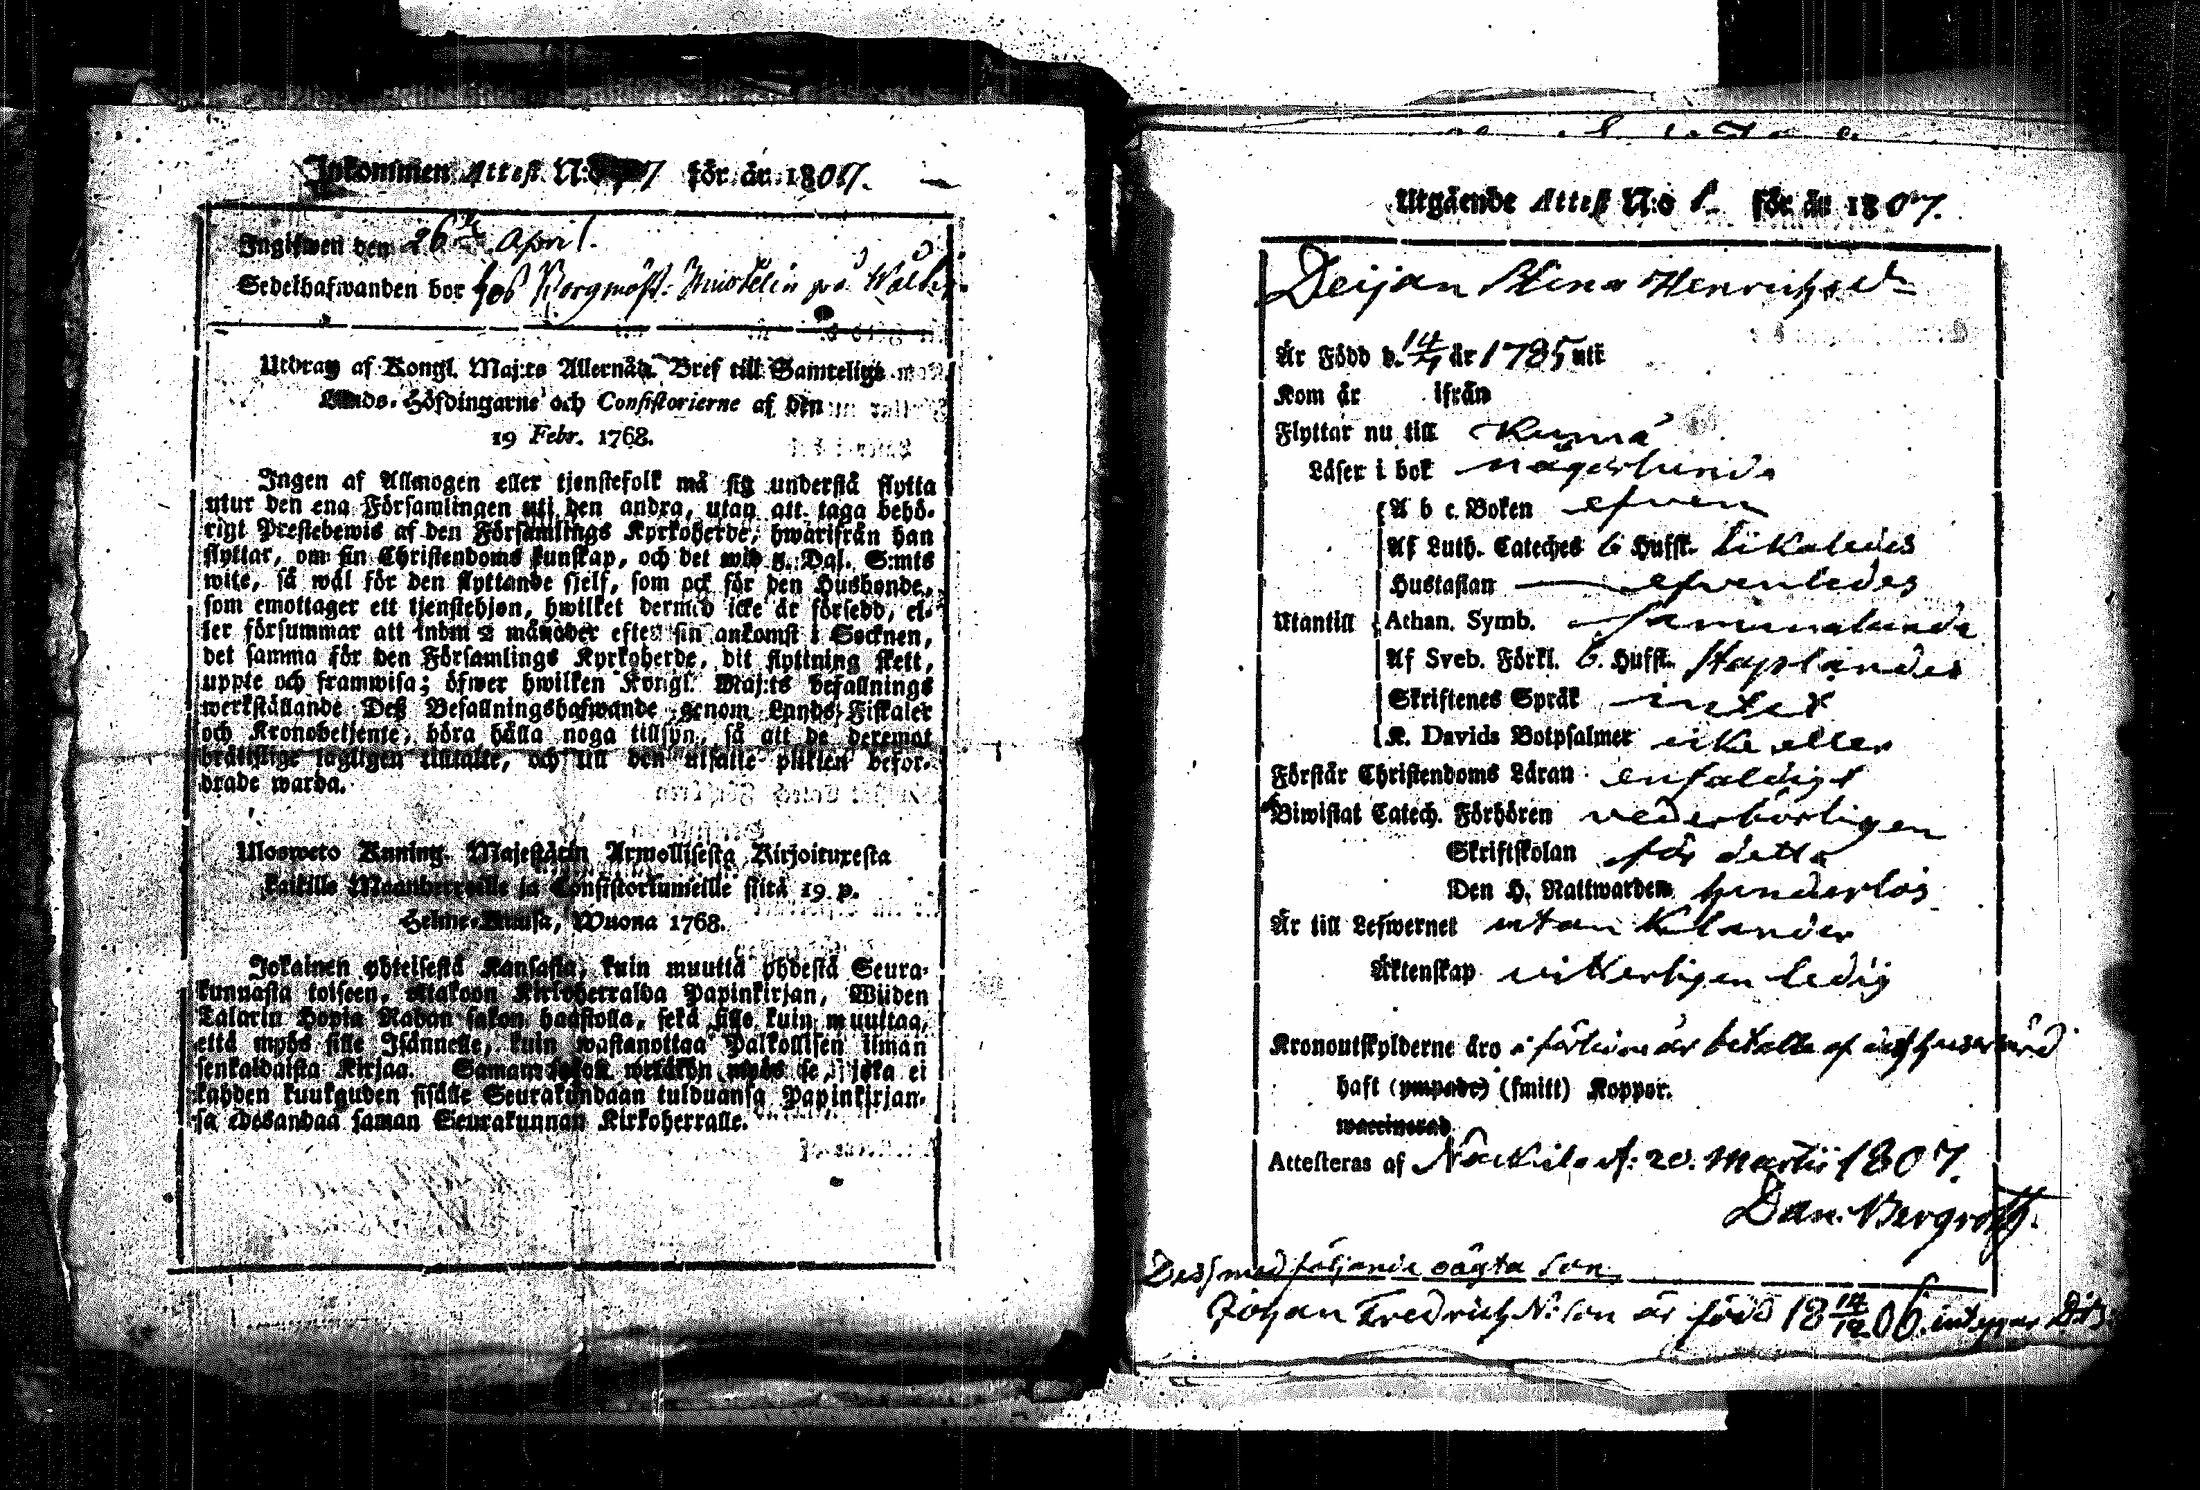 Inkommen Attest N:o 7 för år 1807.
Ingifwen den 26 April.
Sedelhafwanden bor hos på
Utdrag af Kongl. Maj:ts Allernåd. Bref till Samtelige
Lands-Höfdingarne och Consistorierne af den
19 Febr. 1768.
Ingen af Allmogen eller tjenstefolk må sig understå flytta
utur den ena Församlingen uti den andra, utan att taga behö-
rigt Prestebewis af den Församlings Kyrkoherde, hwarifrån han
flyttar, om sin Christendoms kunskap, och det wid 5. Dal. S:mts
wite, så wäl för den flyttande sjelf, som ock för den Husbonde,
som emottager ett tjenstehjon, hwilket dermed icke är försedd, el-
ler försummar att inom 2 månader efter sin ankomst i Socknen,
det samma för den Församlings Kyrkoherde, dit flyttning skett,
uppte och framwisa; öfwer hwilken Kongl. Maj:ts befallnings
werkställande Deß Befallningshafwande genom Lands-Fiskaler
och Kronobetjente, böra hålla noga tillsyn, så att de deremot
brättslige lagligen tilltalte, och till den utsatte plikten befor-
drade warda.
Uloswet​o Kuning. Majestätin Armollisesta Kirjoituxesta
kaikille Maanherroille ja Consistoriumeille siitä 19 p.
Helme-Kuusa, Wuona 1768.
Jokainen yhteisestä Kansasta, kuin muuttaa yhdestä Seura-
kunnasta toiseen, ottakoon Kirkoherralda Papinkirjan, Wiiden
Talarin Hopia Rahan sakon haastolla, sekä sille kuin muuttaa,
että myös sille Isännelle, kuin wastanottaa Palkollisen ilman
senkaldaista Kirjaa. Saman sakon wetäkön myös se, joka ei
kahden kuukauden sisälle Seurakundaan tulduansa Papinkirjan-
sa edesandaa saman Seurakunnan Kirkoherralle.
Utgående Attest N:o 8 för år 1807.
Deijan Stina Henrichsd:r
Är Född d. 14/7 år 1785 uti
Kom år ifrån
Flyttar nu till Kumå
Läser i bok någorlunda
A b c. Boken efven
Af Luth. Cateches 6 Hufst. likaledes
Hustaflan efvenledes
Utantill Athan. Symb. sammalunda
Af Sveb. Förkl. 6. Hufst. Staplandes
Skriftenes Språk intet
K. Davids Botpsalmer icke eller
Förstår Christendoms Läran enfaldigt
Biwistat Catech. Förhören vederbörligen
Skriftskolan för detta
Den H. Nattwarden hinderlös
Är till Lefwernet utan klander
Äktenskap vitterligen ledig
Kronoutskylderne äro i förtiden är betalte af
haft (ympade) (smitt) Koppor.
waccinerad
Attesteras af Nåckila d: 20. Martii 1807.
Dan: Bergroth.
Dess medföljande oägta son,
Johan Fredrich N:son är född 18 14/12 06.